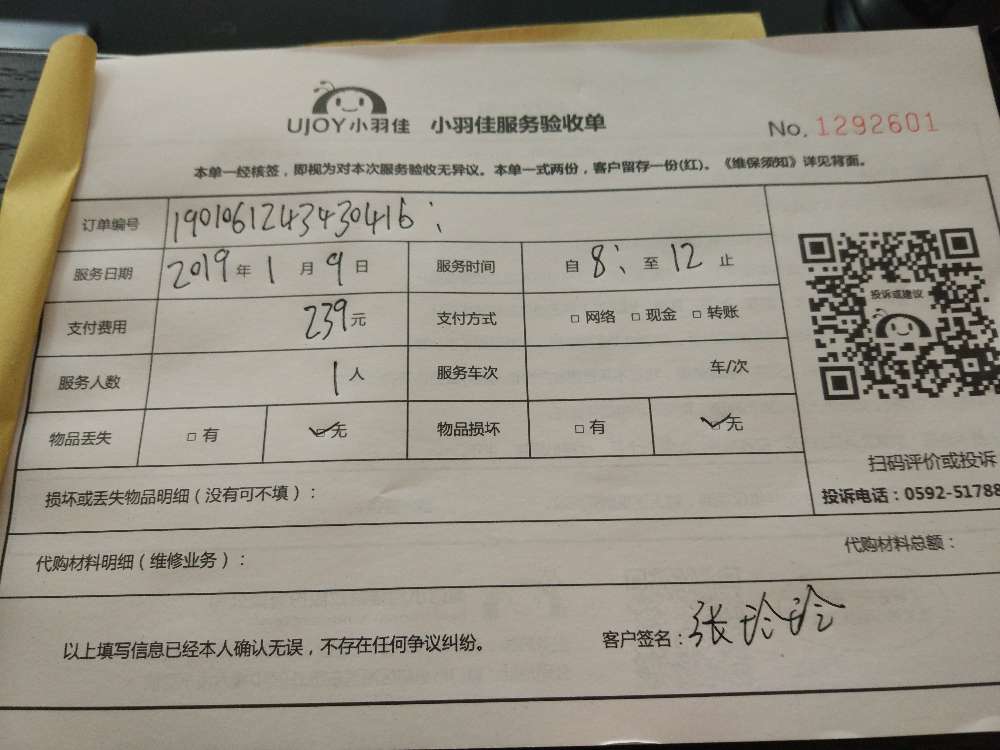 UJOY小羽佳 小羽佳服务验收单
No. 1292601
本单一经核签，即视为对本次服务验收无异议。本单一式两份，客户留存一份(红)。《维保须知》详见背面。
订单编号 1901061243430416
服务日期 2019年1月9日 服务时间 自8:至12止
支付费用 239元 支付方式 □网络 □现金 □转账
投诉或建议
服务人数 1人 服务车次 车/次
物品丢失 □有 ☑无 物品损坏 □有 ☑无
扫码评价或投诉
投诉电话：0592-51788
损坏或丢失物品明细（没有可不填）：
代购材料明细（维修业务）： 代购材料总额：
以上填写信息已经本人确认无误，不存在任何争议纠纷。 客户签名：张玲玲